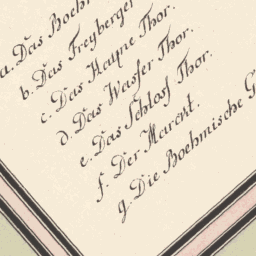 a. Das Boehm
b. Das Freyberger
c. Das Hayne Thor.
d. Das Wasser Thor.
e. Das Schloss Thor.
f. Der Marckt.
g. Die Boehmische G